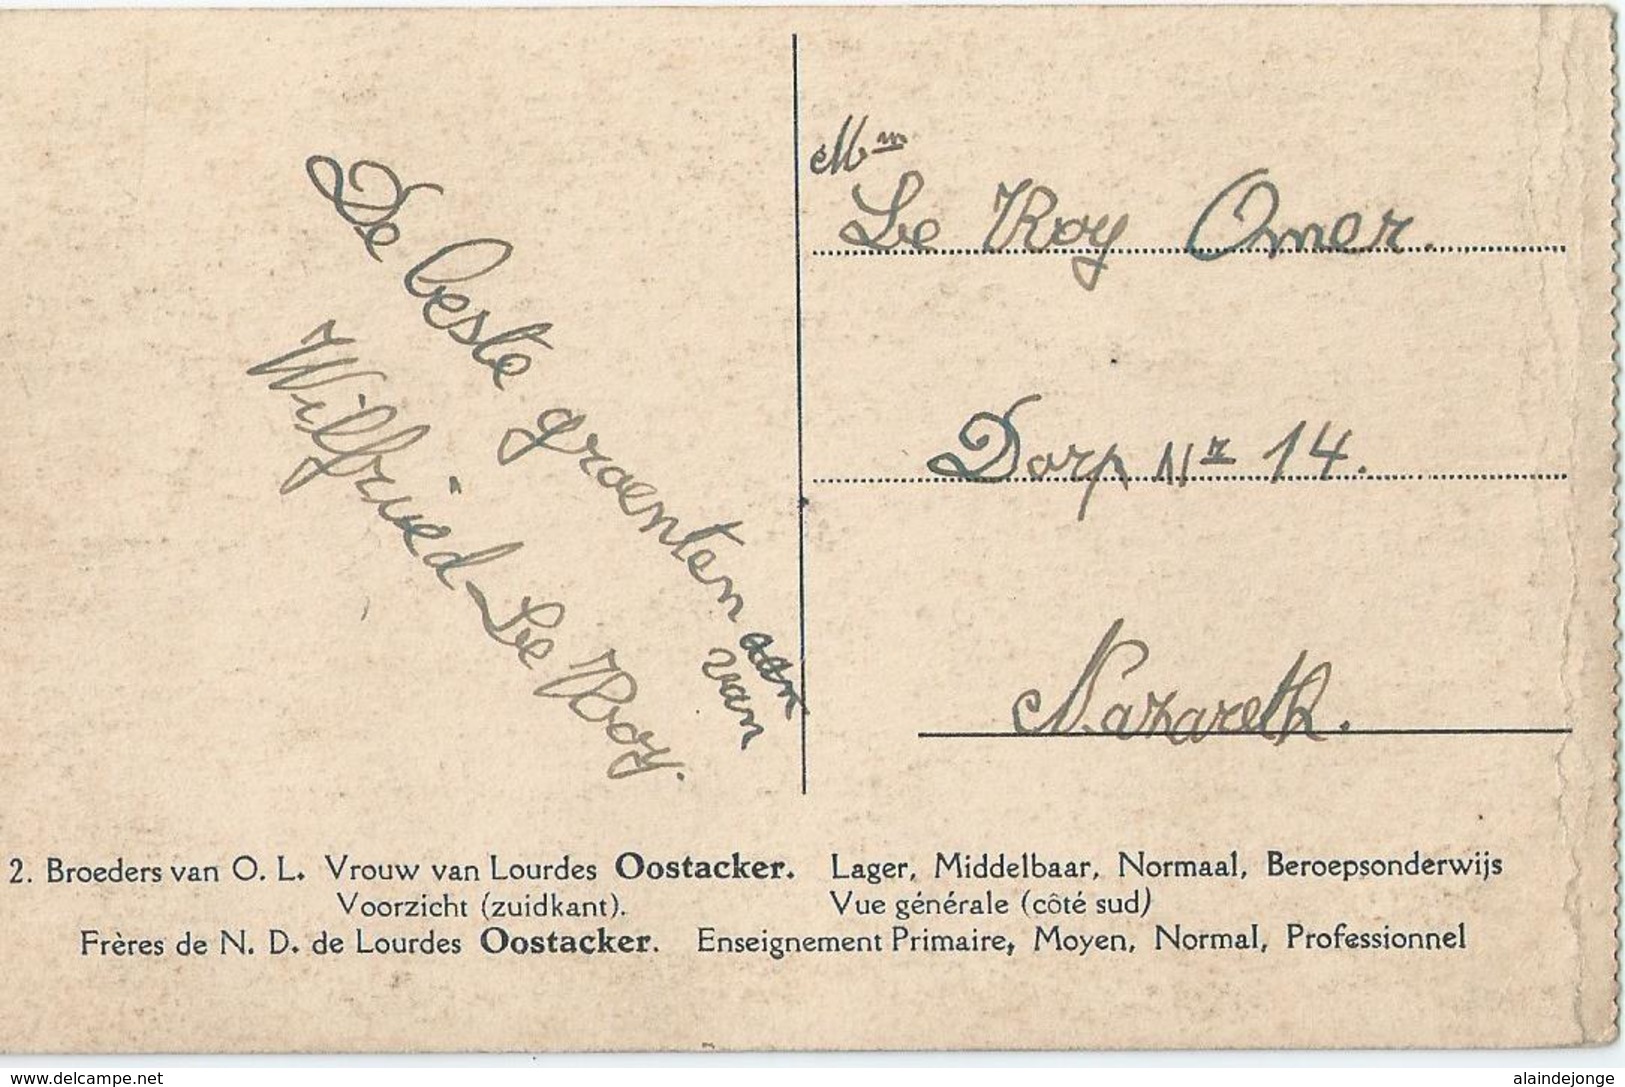 De beste groenten aan
van
Wilfried Le Roy.
Mm
Le Roy Omer.
Dorp Nr 14.
Nazareth.
2. Broeders van O. L. Vrouw van Lourdes Oostacker. Lager, Middelbaar, Normaal, Beroepsonderwijs
Voorzicht (zuidkant). Vue générale (côté sud)
Frères de N. D. de Lourdes Oostacker. Enseignement Primaire, Moyen, Normal, Professionnel
www.delcampe.net alaindejonge